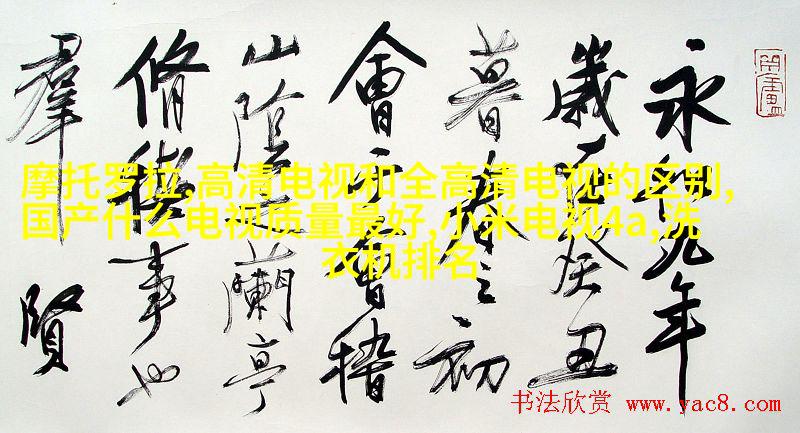 永和九年
歲在癸丑
暮春之初
會于會稽
山陰之蘭亭
脩禊事也
羣賢
摩托罗拉,高清电视和全高清电视的区别,
国产什么电视质量最好,小米电视4a,洗
衣机排名
书法欣赏 www.yac8.com